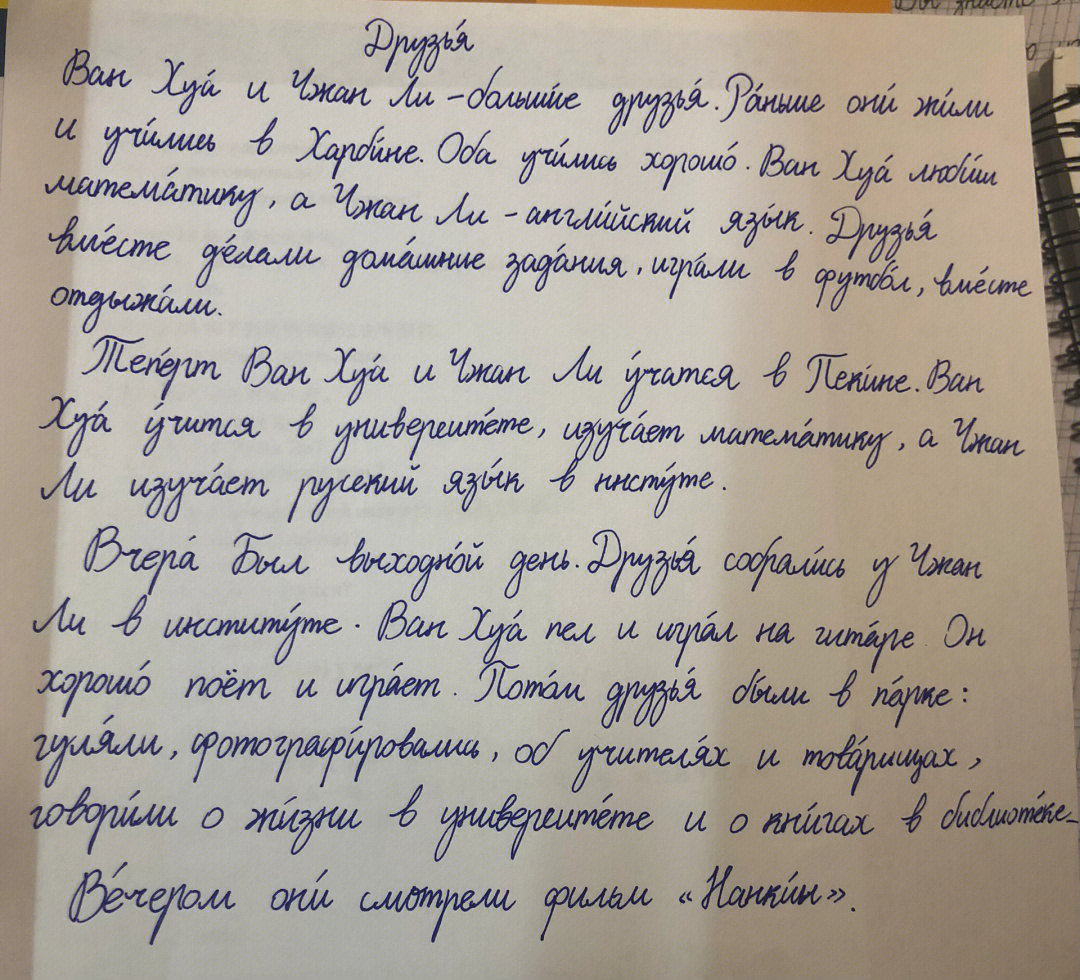 Друзья́
Ван Хуа́ и Чжан Ли – больши́е друзья́. Ра́ньше они́ жи́ли
и учи́лись в Харби́не. Оба учи́лись хорошо́. Ван Хуа́ люби́л
матема́тику, а Чжан Ли – англи́йский язы́к. Друзья́
вме́сте де́лали дома́шние зада́ния, игра́ли в футбо́л, вме́сте
отдыжа́ли.
Тепе́рт Ван Хуа́ и Чжан Ли у́чатся в Пеки́не. Ван
Хуа́ у́чится в университе́те, изуча́ет матема́тику, а Чжан
Ли изуча́ет русский язы́к в инсту́те.
Вчера́ Был выходно́й день. Друзья́ собрали́сь у Чжан
Ли в институ́те. Ван Хуа́ пел и игра́л на гита́ре. Он
хорошо́ поёт и игра́ет. Пото́м друзья́ бы́ли в па́рке:
гуля́ли, фотографи́ровались, об учителя́х и това́рищах,
говори́ли о жи́зни в университе́те и о кни́гах в библиоте́ке.
Ве́чером они́ смотрели фильм «Нанки́н».